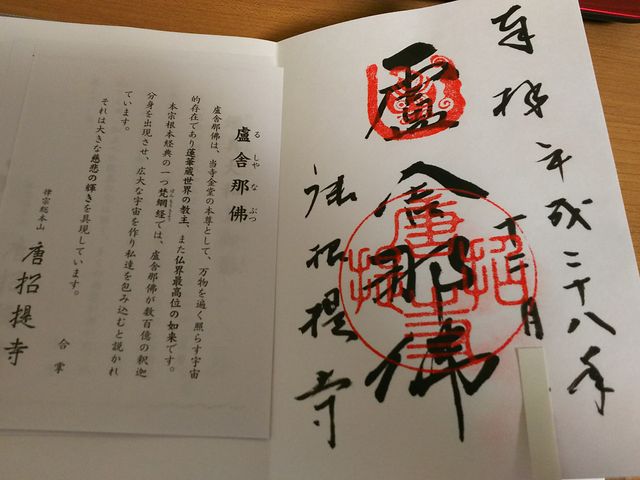 奉拝 平成二十八年
十二月
盧舎那佛
唐招提寺
盧舎那佛
るしゃなぶつ
盧舎那佛は、当寺金堂の本尊として、万物を遍く照らす宇宙
的存在であり蓮華蔵世界の教主、また仏界最高位の如来です。
本宗根本経典の一つ梵網経では、盧舎那佛が数百億の釈迦
ぼんもうきょう
分身を出現させ、広大な宇宙を作り私達を包み込むと説かれ
ています。
それは大きな慈悲の輝きを具現しています。
合掌
律宗総本山
唐招提寺